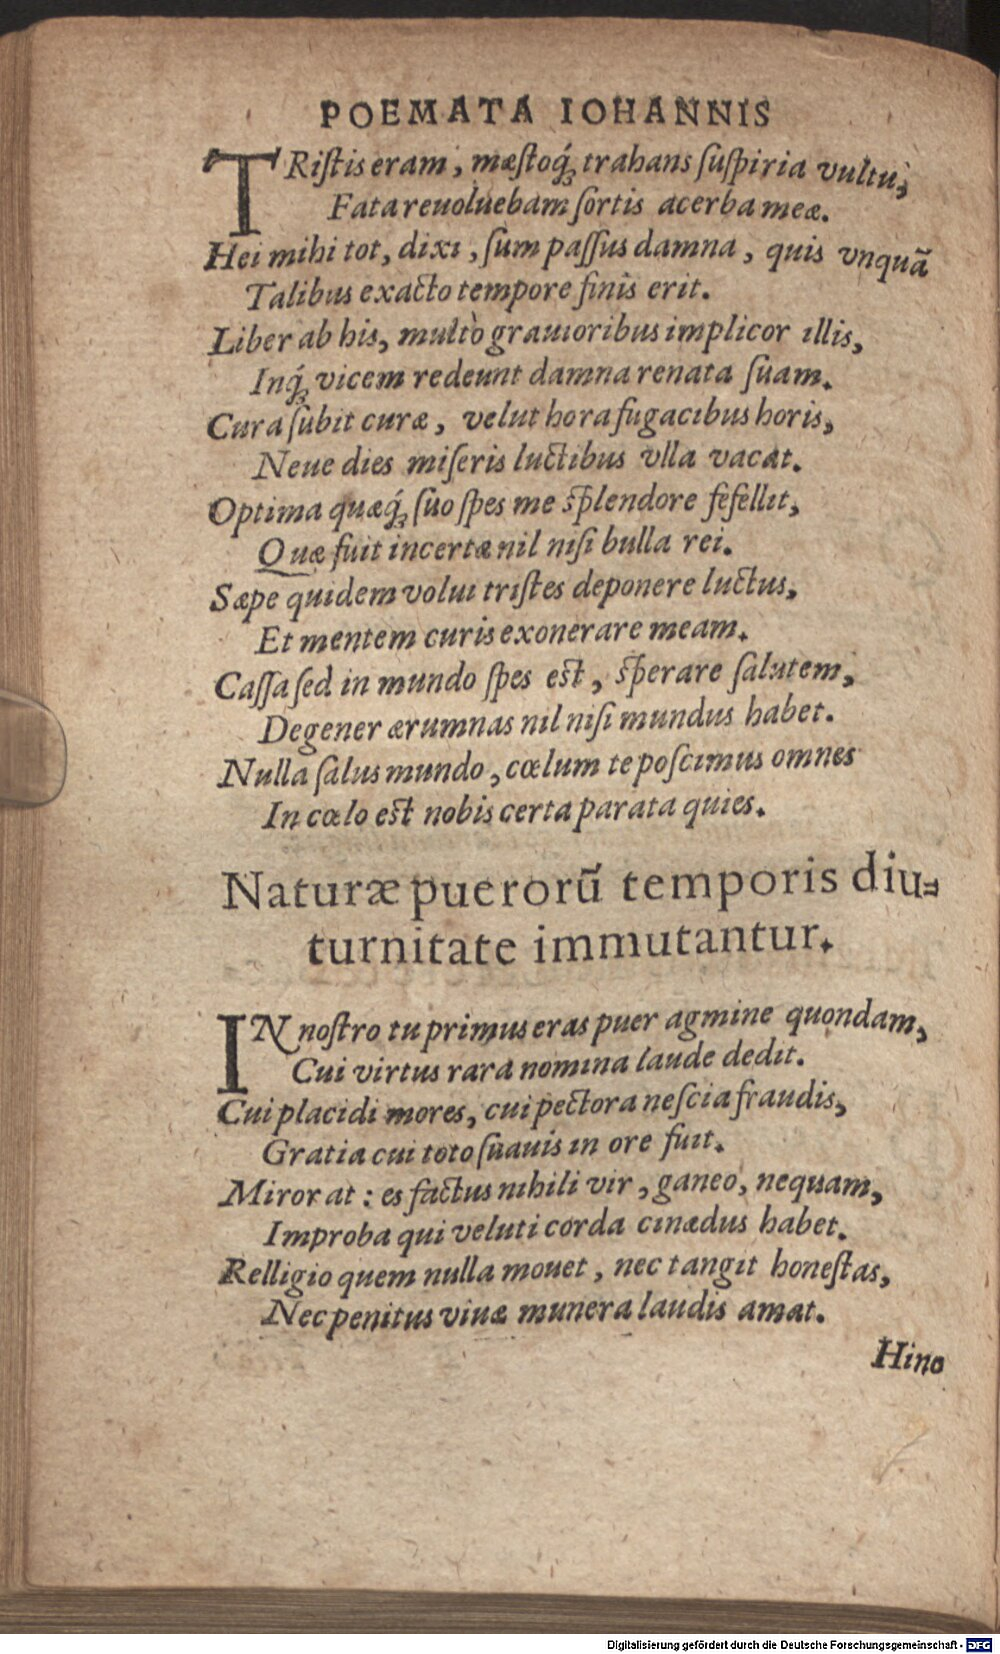 POEMATA IOHANNIS
TRiſtis eram, mæſtoq́; trahans ſuſpiria vultu,
Fata reuoluebam ſortis acerba meæ.
Hei mihi tot, dixi, ſum paſſus damna, quis vnquã
Talibus exacto tempore finis erit.
Liber ab his, multò grauioribus implicor illis,
Inq́; vicem redeunt damna renata ſuam.
Cura ſubit curæ, velut hora fugacibus horis,
Neue dies miſeris luctibus vlla vacat.
Optima quæq́; ſuo ſpes me ſplendore fefellit,
Quæ fuit incertæ nil niſi bulla rei.
Sæpe quidem volui triſtes deponere luctus,
Et mentem curis exonerare meam.
Caſſa ſed in mundo ſpes eſt, ſperare ſalutem,
Degener ærumnas nil niſi mundus habet.
Nulla ſalus mundo, cœlum te poſcimus omnes
In cœlo eſt nobis certa parata quies.
Naturæ puerorũ temporis diu-
turnitate immutantur.
IN noſtro tu primus eras puer agmine quondam,
Cui virtus rara nomina laude dedit.
Cui placidi mores, cui pectora neſcia fraudis,
Gratia cui toto ſuauis in ore fuit.
Miror at: es factus nihili vir, ganeo, nequam,
Improba qui veluti corda cinædus habet.
Relligio quem nulla mouet, nec tangit honeſtas,
Nec penitus viuæ munera laudis amat.
Hinc
Digitalisierung gefördert durch die Deutsche Forschungsgemeinschaft - DFG